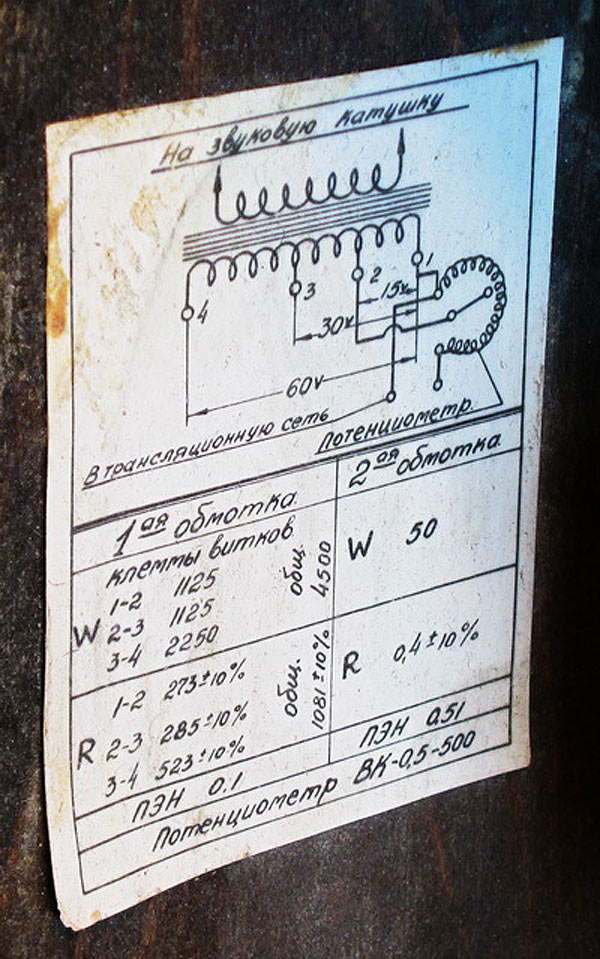 На звуковую катушку
1
2
3
4
15v
30v
60v
В трансляционную сеть
Потенциометр.
1ая обмотка.
клеммы витков
W
1-2 1125
2-3 1125
3-4 2250
общ. 4500
R
1-2 273±10%
2-3 285±10%
3-4 523±10%
общ. 1081±10%
ПЭН 0.1
2ая обмотка
W 50
R 0,4±10%
ПЭН 0.51
Потенциометр ВК-0,5-500